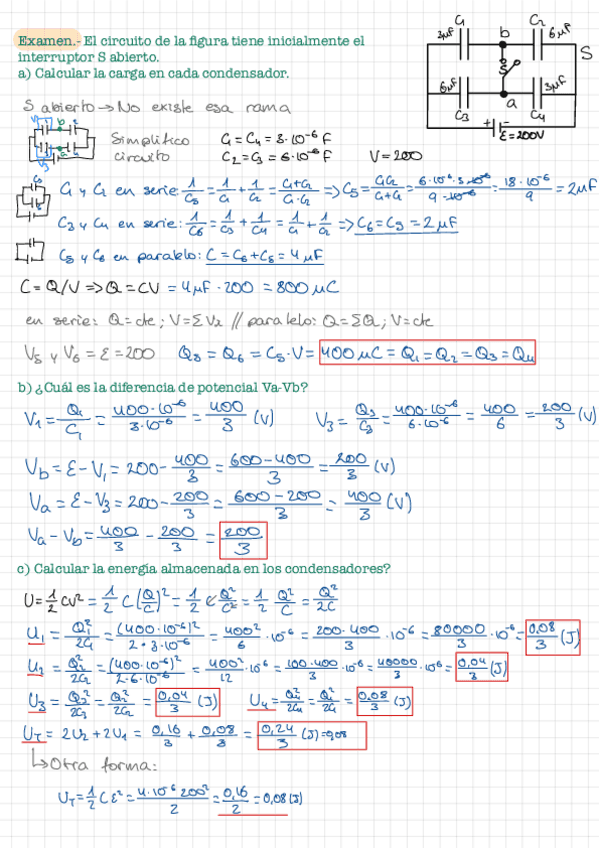 Examen.- El circuito de la figura tiene inicialmente el
interruptor S abierto.
a) Calcular la carga en cada condensador.
C₁ C₂
3μF b 6μF
S
6μF a 3μF
C₃ C₄
ε=200V
S abierto → No existe esa rama
Simplifico C₁ = C₄ = 3·10⁻⁶ F
circuito C₂ = C₃ = 6·10⁻⁶ F V=200
C₁ y C₂ en serie: 1/C₅ = 1/C₁ + 1/C₂ = (C₁+C₂)/(C₁·C₂) => C₅ = C₁C₂/(C₁+C₂) = 6·10⁻⁶·3·10⁻⁶/9·10⁻⁶ = 18·10⁻⁶/9 = 2μF
C₃ y C₄ en serie: 1/C₆ = 1/C₃ + 1/C₄ = 1/C₁ + 1/C₂ => C₆ = C₅ = 2μF
C₅ y C₆ en paralelo: C = C₆ + C₅ = 4μF
C = Q/V => Q = CV = 4μF · 200 = 800μC
en serie: Q = cte; V = ΣVi // paralelo: Q = ΣQi; V = cte
V₅ y V₆ = ε = 200 Q₅ = Q₆ = C₅·V = 400μC = Q₁ = Q₂ = Q₃ = Q₄
b) ¿Cuál es la diferencia de potencial Va-Vb?
V₁ = Q₁/C₁ = 400·10⁻⁶/3·10⁻⁶ = 400/3 (V) V₃ = Q₃/C₃ = 400·10⁻⁶/6·10⁻⁶ = 400/6 = 200/3 (V)
Vb = ε - V₁ = 200 - 400/3 = (600-400)/3 = 200/3 (V)
Va = ε - V₃ = 200 - 200/3 = (600-200)/3 = 400/3 (V)
Va - Vb = 400/3 - 200/3 = 200/3
c) Calcular la energía almacenada en los condensadores?
U = 1/2 CV² = 1/2 C(Q/C)² = 1/2 C Q²/C² = 1/2 Q²/C = Q²/2C
U₁ = Q₁²/2C₁ = (400·10⁻⁶)²/2·3·10⁻⁶ = 400²/6 · 10⁻⁶ = 200·400/3 · 10⁻⁶ = 80000/3 · 10⁻⁶ = 0,08/3 (J)
U₂ = Q₂²/2C₂ = (400·10⁻⁶)²/2·6·10⁻⁶ = 400²/12 · 10⁻⁶ = 100·400/3 · 10⁻⁶ = 40000/3 · 10⁻⁶ = 0,04/3 (J)
U₃ = Q₃²/2C₃ = Q₂²/2C₂ = 0,04/3 (J) U₄ = Q₄²/2C₄ = Q₁²/2C₁ = 0,08/3 (J)
U_T = 2U₂ + 2U₁ = 0,16/3 + 0,08/3 = 0,24/3 (J) = 0,08
↳ Otra forma:
U_T = 1/2 Cε² = 4·10⁻⁶ 200²/2 = 0,16/2 = 0,08 (J)